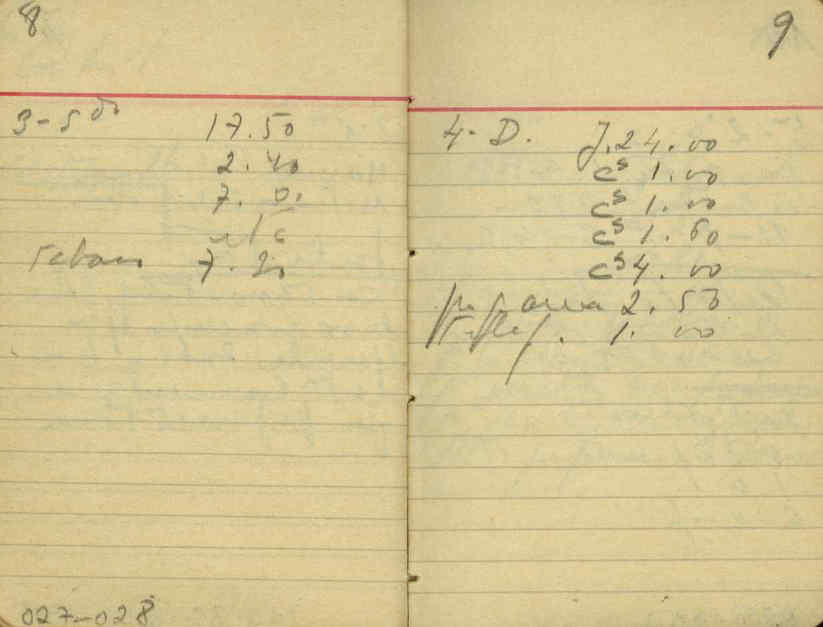 8
3-S do 17.50
2.40
7.
7.20
027-028
9
4-D. J.24.00
cs 1.00
cs 1.00
cs 1.60
cs 4.00
2.50
1.00